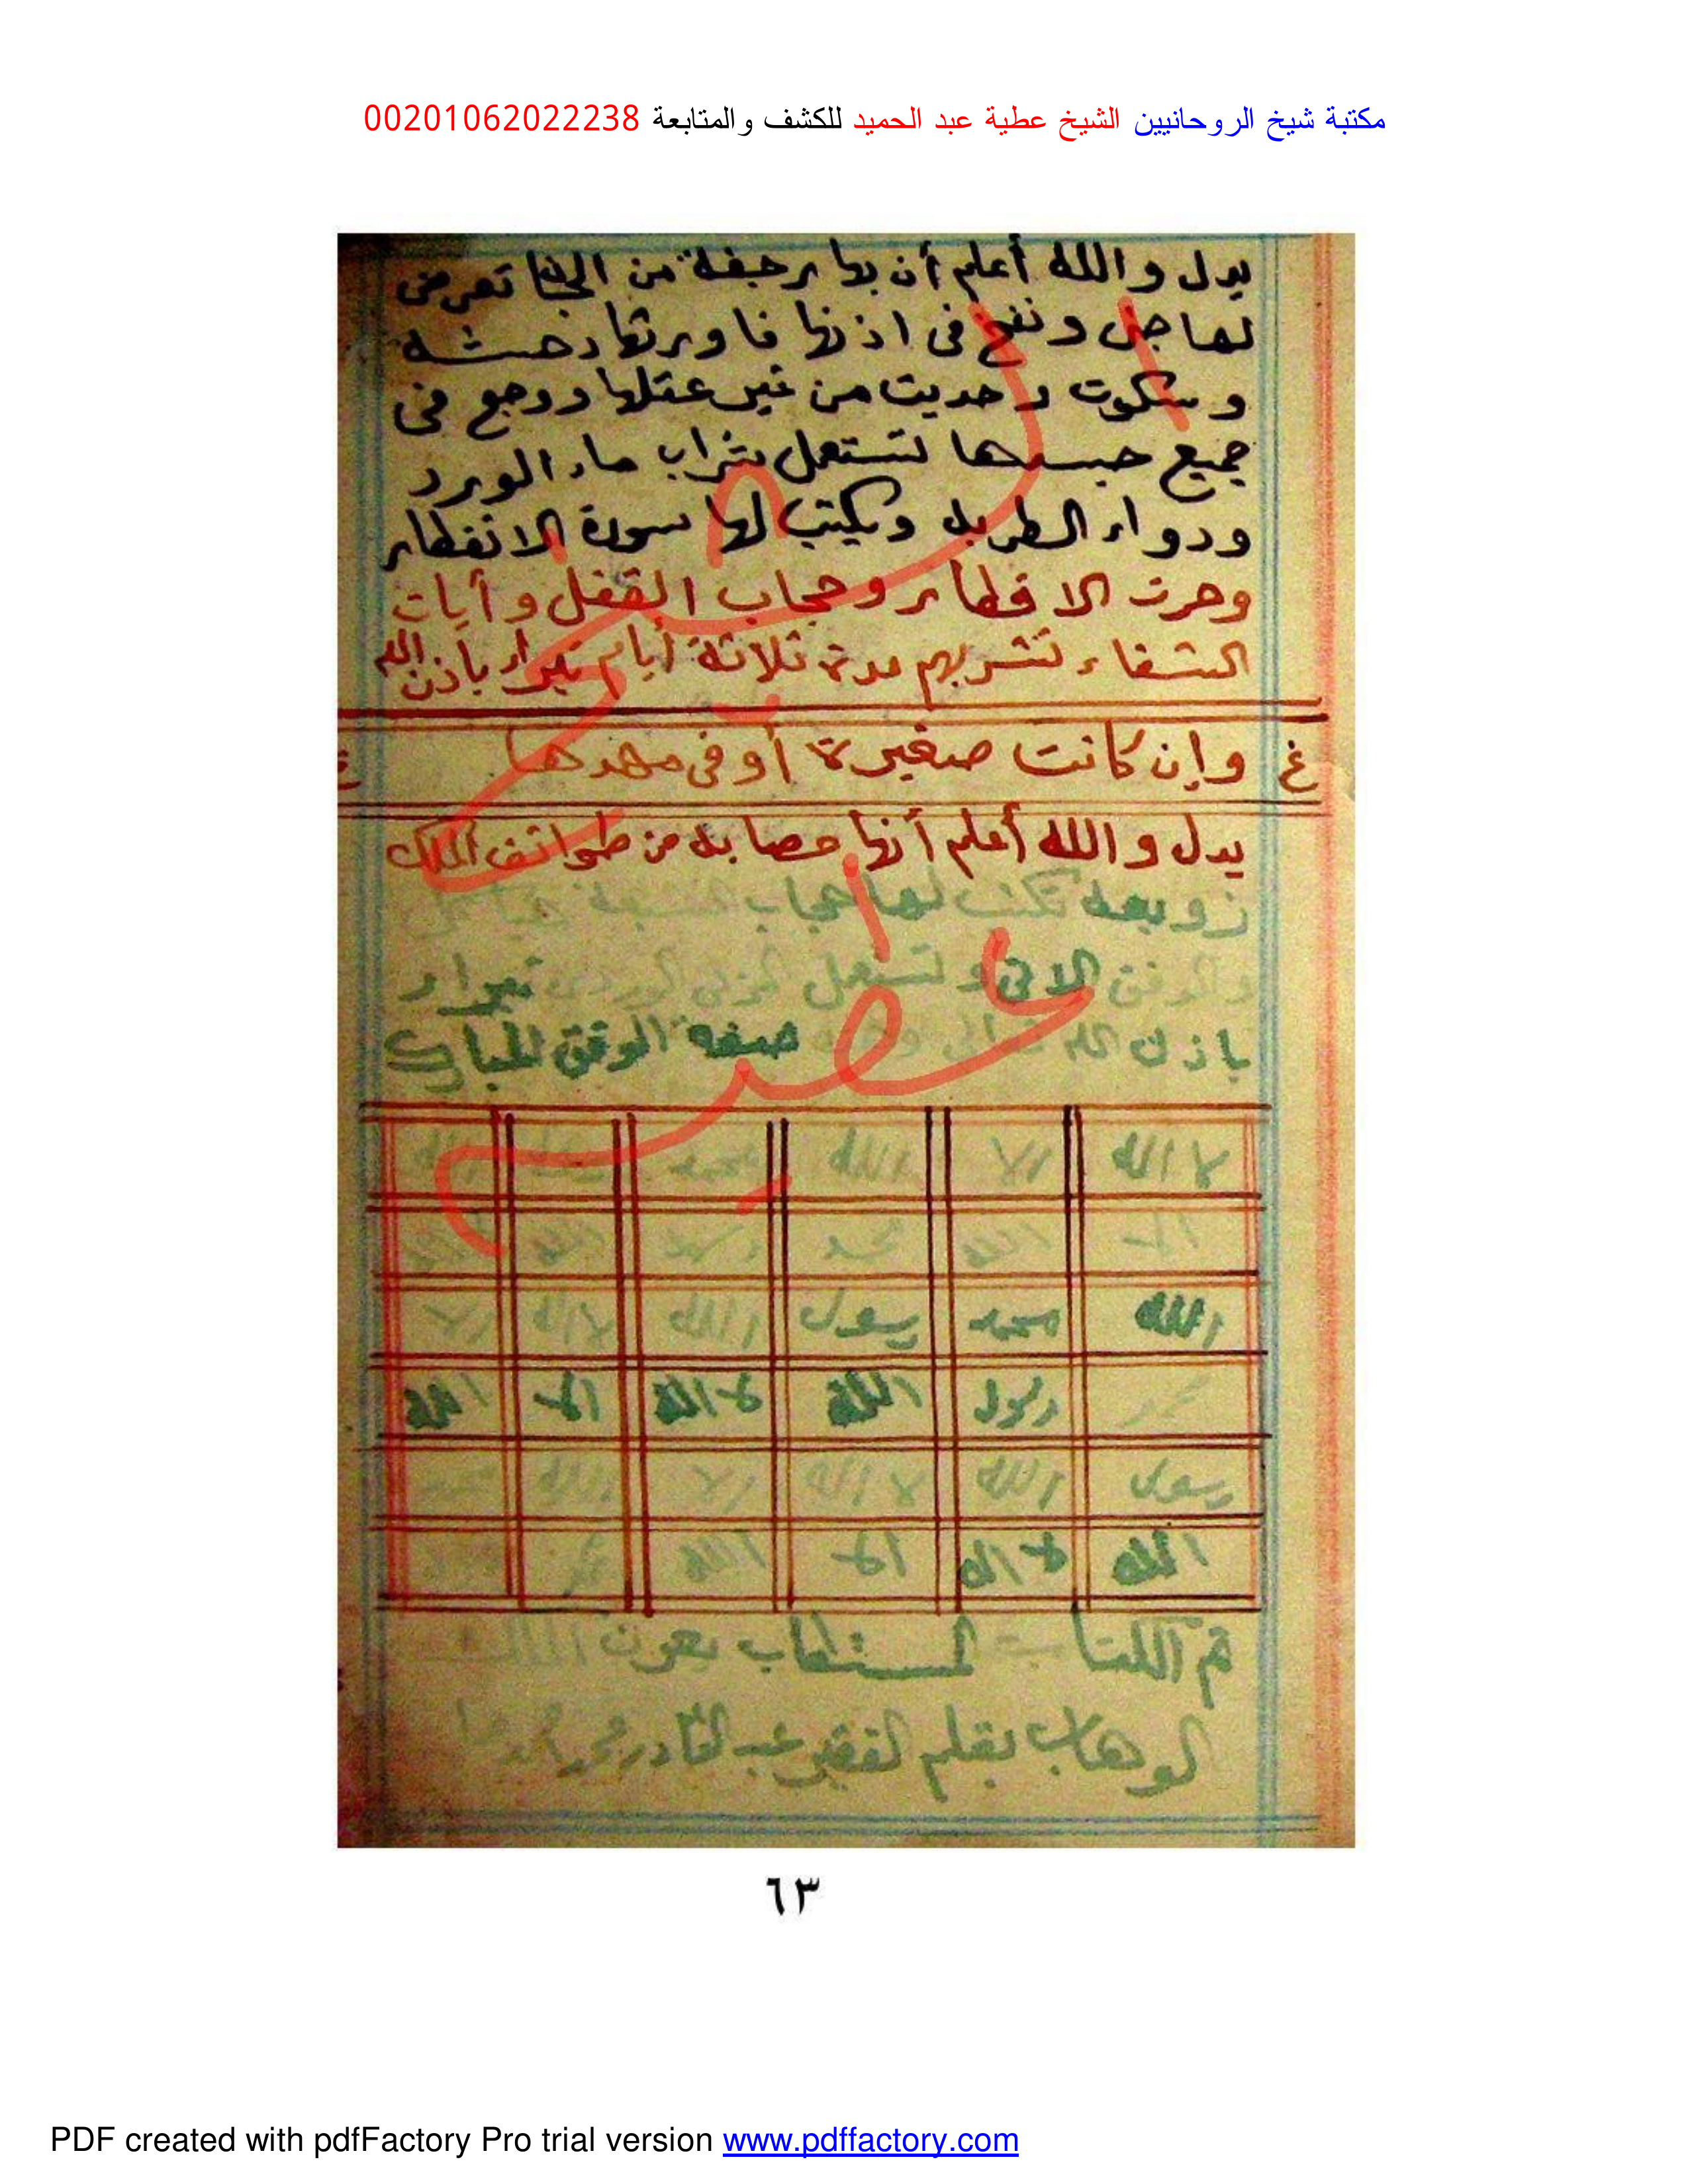 مكتبة شيخ الروحانيين الشيخ عطية عبد الحميد للكشف والمتابعة 00201062022238
يدل والله أعلم أن بها رجفة من تعرض
لها جن ونفخ فى اذنها فاورثها دهشه
وسكوت وحديت من غير عقلها ووجع فى
جميع جسدها لتستعمل شراب ماء الورد
ودواء الطربله ويكتب لها سورة الانفطار
وحرت الاقطار وحجاب القفل وأيات
الشفاء تشربهم مدة ثلاثة أيام تبرأ بأذن الله
غ وإن كانت صغيرة أو فى مهدها غ
يدل والله أعلم أنها مصابه من طوائف الملك
زوبعه تكتب لها حجاب
والوفق الاتى و لتستعمل تبرا
باذن الله تعالى صفة الوفق المبارك
لا اله الا الله محمد
الا الله محمد رسول الله
الله محمد رسول الله لا اله الا
رسول الله لا اله الا الله
رسول الله لا اله الا الله
الله لا اله الا الله
تم الكتاب المستطاب بعون الملك
الوهاب بقلم الفقير عبد القادر محمد
٦٣
PDF created with pdfFactory Pro trial version www.pdffactory.com